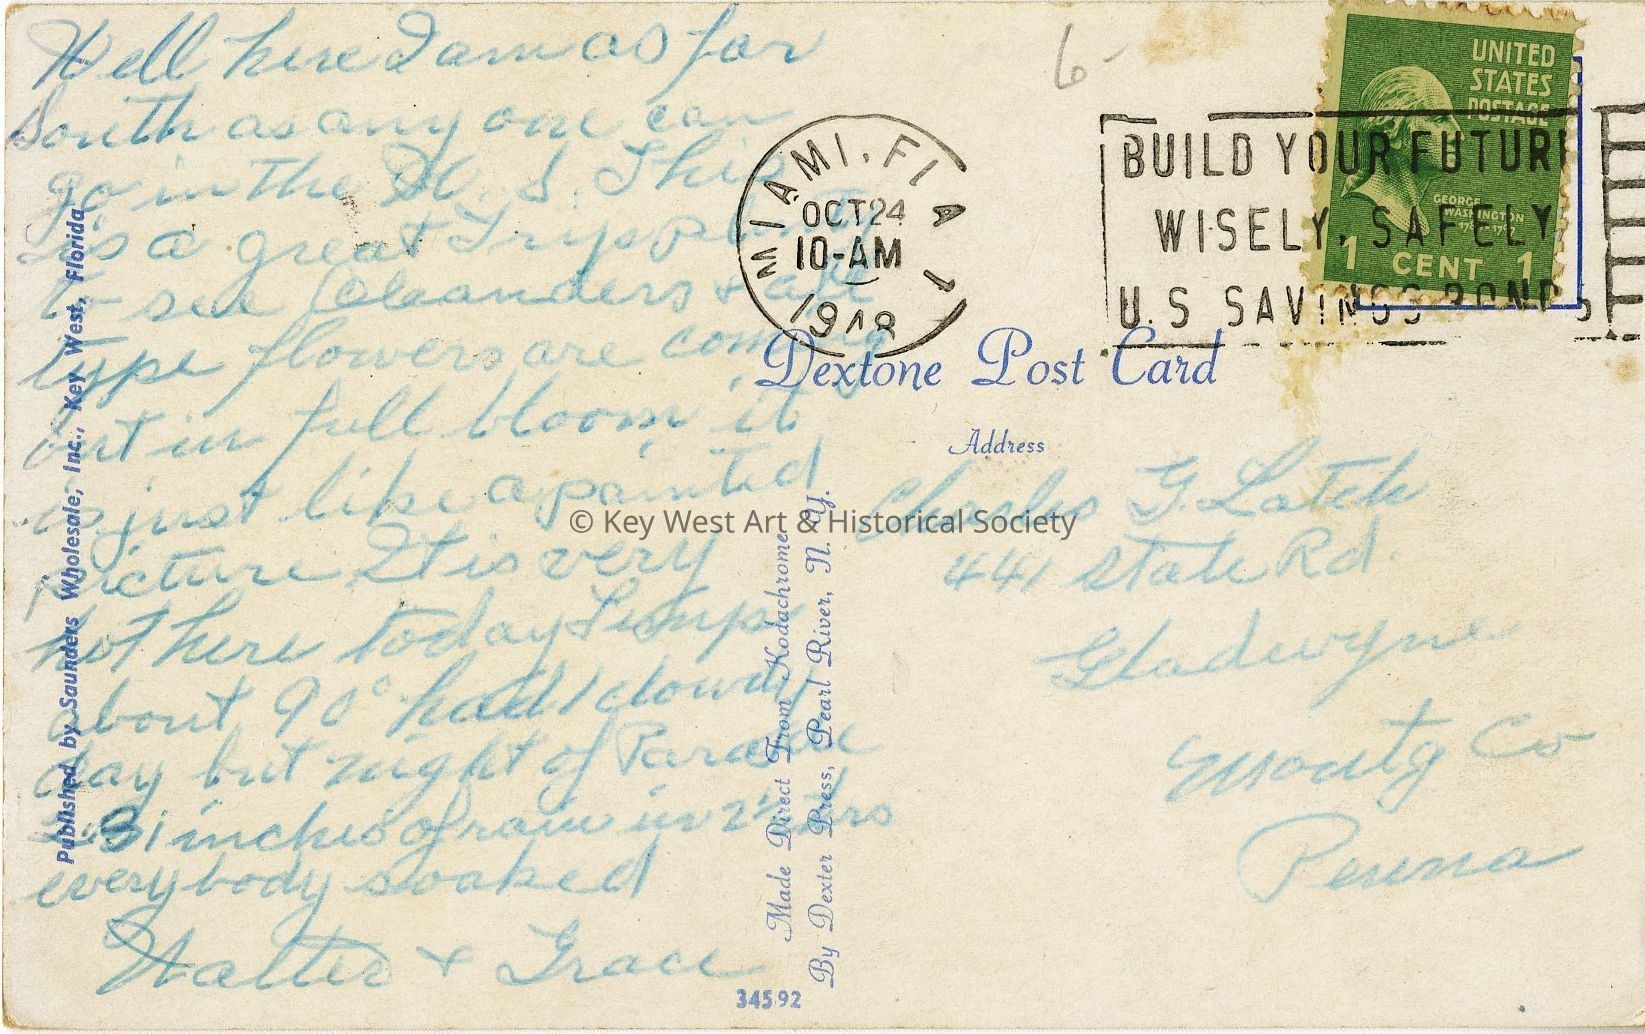 Well here I am as far
South as any one can
go in the U. S. This
is a great
to see Oleanders & all
type flowers are coming
out in full bloom it
is just like a painted
picture It is very
hot here today Temp
about 90° had 1 cloudy
day but night of Parade
31 inches of rain in 2 hrs
everybody soaked
Walter & Grace
Published by Saunders Wholesale, Inc., Key West, Florida
6-
MIAMI, FLA 1
OCT 24
10-AM
1948
BUILD YOUR FUTURE
WISELY, SAFELY
U.S SAVINGS BONDS
UNITED
STATES
POSTAGE
GEORGE
WASHINGTON
1 CENT 1
Dextone Post Card
Address
Charles G. Latch
441 State Rd.
Gladwyne
Montg Co
Penna
Made Direct From Kodachromes
By Dexter Press, Pearl River, N. Y.
34592
© Key West Art & Historical Society